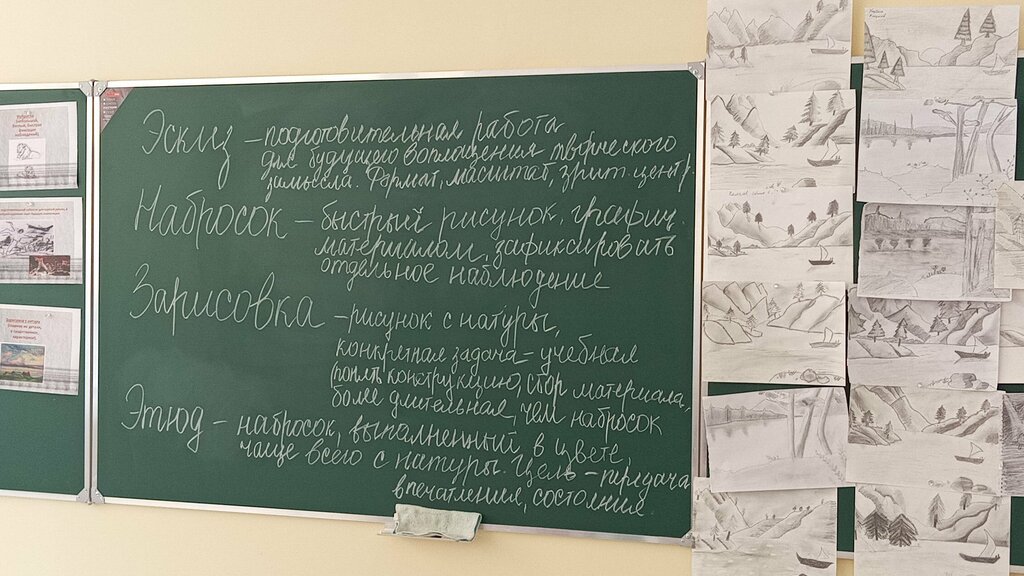 Эскиз – подготовительная работа
для будущего воплощения творческого
замысла. Формат, масштаб, зрит. центр.
Набросок – быстрый рисунок, графич.
материалом, зафиксировать
отдельное наблюдение
Зарисовка – рисунок с натуры,
конкретная задача – учебная
конструкцию, сбор материала,
более длительная, чем набросок
Этюд – набросок, выполненный в цвете,
чаще всего с натуры. Цель – передача
впечатления, состояния.